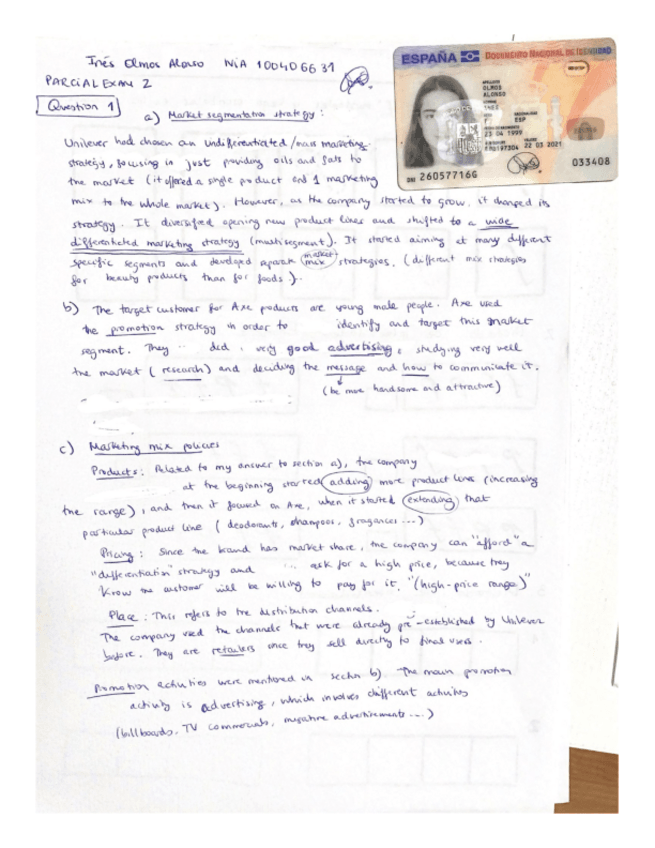 Inés Olmos Alonso NIA 100406631
PARCIAL EXAM 2
Question 1
a) Market segmentation strategy :
Unilever had chosen an undifferentiated / mass marketing
strategy, focusing in just providing oils and fats to
the market (it offered a single product and 1 marketing
mix to the whole market). However, as the company started to grow, it changed its
strategy. It diversified opening new product lines and shifted to a wide
differentiated marketing strategy (multisegment). It started aiming at many different
specific segments and developed market mix strategies. (different mix strategies
for beauty products than for foods).
b) The target customer for Axe products are young male people. Axe used
the promotion strategy in order to identify and target this market
segment. They did very good advertising, studying very well
the market (research) and deciding the message and how to communicate it.
(be more handsome and attractive)
c) Marketing mix policies
Products: Related to my answer to section a), the company
at the beginning started adding more product lines (increasing
the range), and then it focused on Axe, when it started extending that
particular product line (deodorants, shampoos, fragances ...)
Pricing: Since the brand has market share, the company can "afford" a
"differentiation" strategy and ask for a high price, because they
know the customer will be willing to pay for it. "(high-price range)"
Place: This refers to the distribution channels.
The company used the channels that were already pre-established by Unilever
before. They are retailers since they sell directly to final users.
Promotion activities were mentioned in section b) The main promotion
activity is advertising, which involves different activities
(billboards, TV commercials, magazine advertisements ...)
ESPAÑA DOCUMENTO NACIONAL DE IDENTIDAD
OLMOS
ALONSO
INES
ESP
23 04 1999
22 03 2021
033408
DNI 26057716G